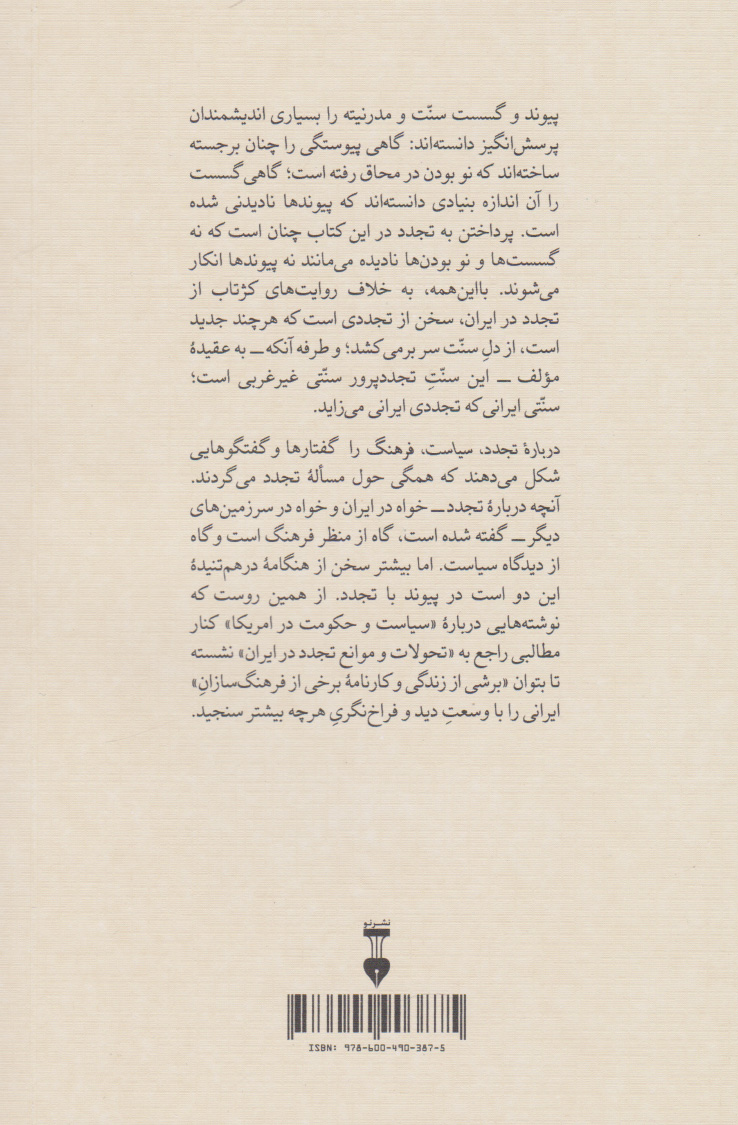 پیوند و گسست سنّت و مدرنیته را بسیاری اندیشمندان
پرسش‌انگیز دانسته‌اند: گاهی پیوستگی را چنان برجسته
ساخته‌اند که نو بودن در محاق رفته است؛ گاهی گسست
را آن اندازه بنیادی دانسته‌اند که پیوندها نادیدنی شده
است. پرداختن به تجدد در این کتاب چنان است که نه
گسست‌ها و نو بودن‌ها نادیده می‌مانند نه پیوندها انکار
می‌شوند. بااین‌همه، به خلاف روایت‌های کژتاب از
تجدد در ایران، سخن از تجددی است که هرچند جدید
است، از دلِ سنّت سر برمی‌کشد؛ و طرفه آنکه ــ به عقیدهٔ
مؤلف ــ این سنّتِ تجددپرور سنّتی غیرغربی است؛
سنّتی ایرانی که تجددی ایرانی می‌زاید.
دربارهٔ تجدد، سیاست، فرهنگ را گفتارها و گفتگوهایی
شکل می‌دهند که همگی حول مسألهٔ تجدد می‌گردند.
آنچه دربارهٔ تجدد ــ خواه در ایران و خواه در سرزمین‌های
دیگر ــ گفته شده است، گاه از منظر فرهنگ است و گاه
از دیدگاه سیاست. اما بیشتر سخن از هنگامهٔ درهم‌تنیدهٔ
این دو است در پیوند با تجدد. از همین روست که
نوشته‌هایی دربارهٔ «سیاست و حکومت در امریکا» کنار
مطالبی راجع به «تحولات و موانع تجدد در ایران» نشسته
تا بتوان «برشی از زندگی و کارنامهٔ برخی از فرهنگ‌سازانِ»
ایرانی را با وسعتِ دید و فراخ‌نگریِ هرچه بیشتر سنجید.
نشرنو
ISBN: 978-600-490-387-5